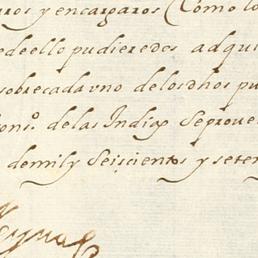 rros y encargaros (Como lo
deello pudieredes adqui
sobrecada vno delos dhos pu
Cons.º delas Indias Seproue
demily Seiscientos y seten
Reyna